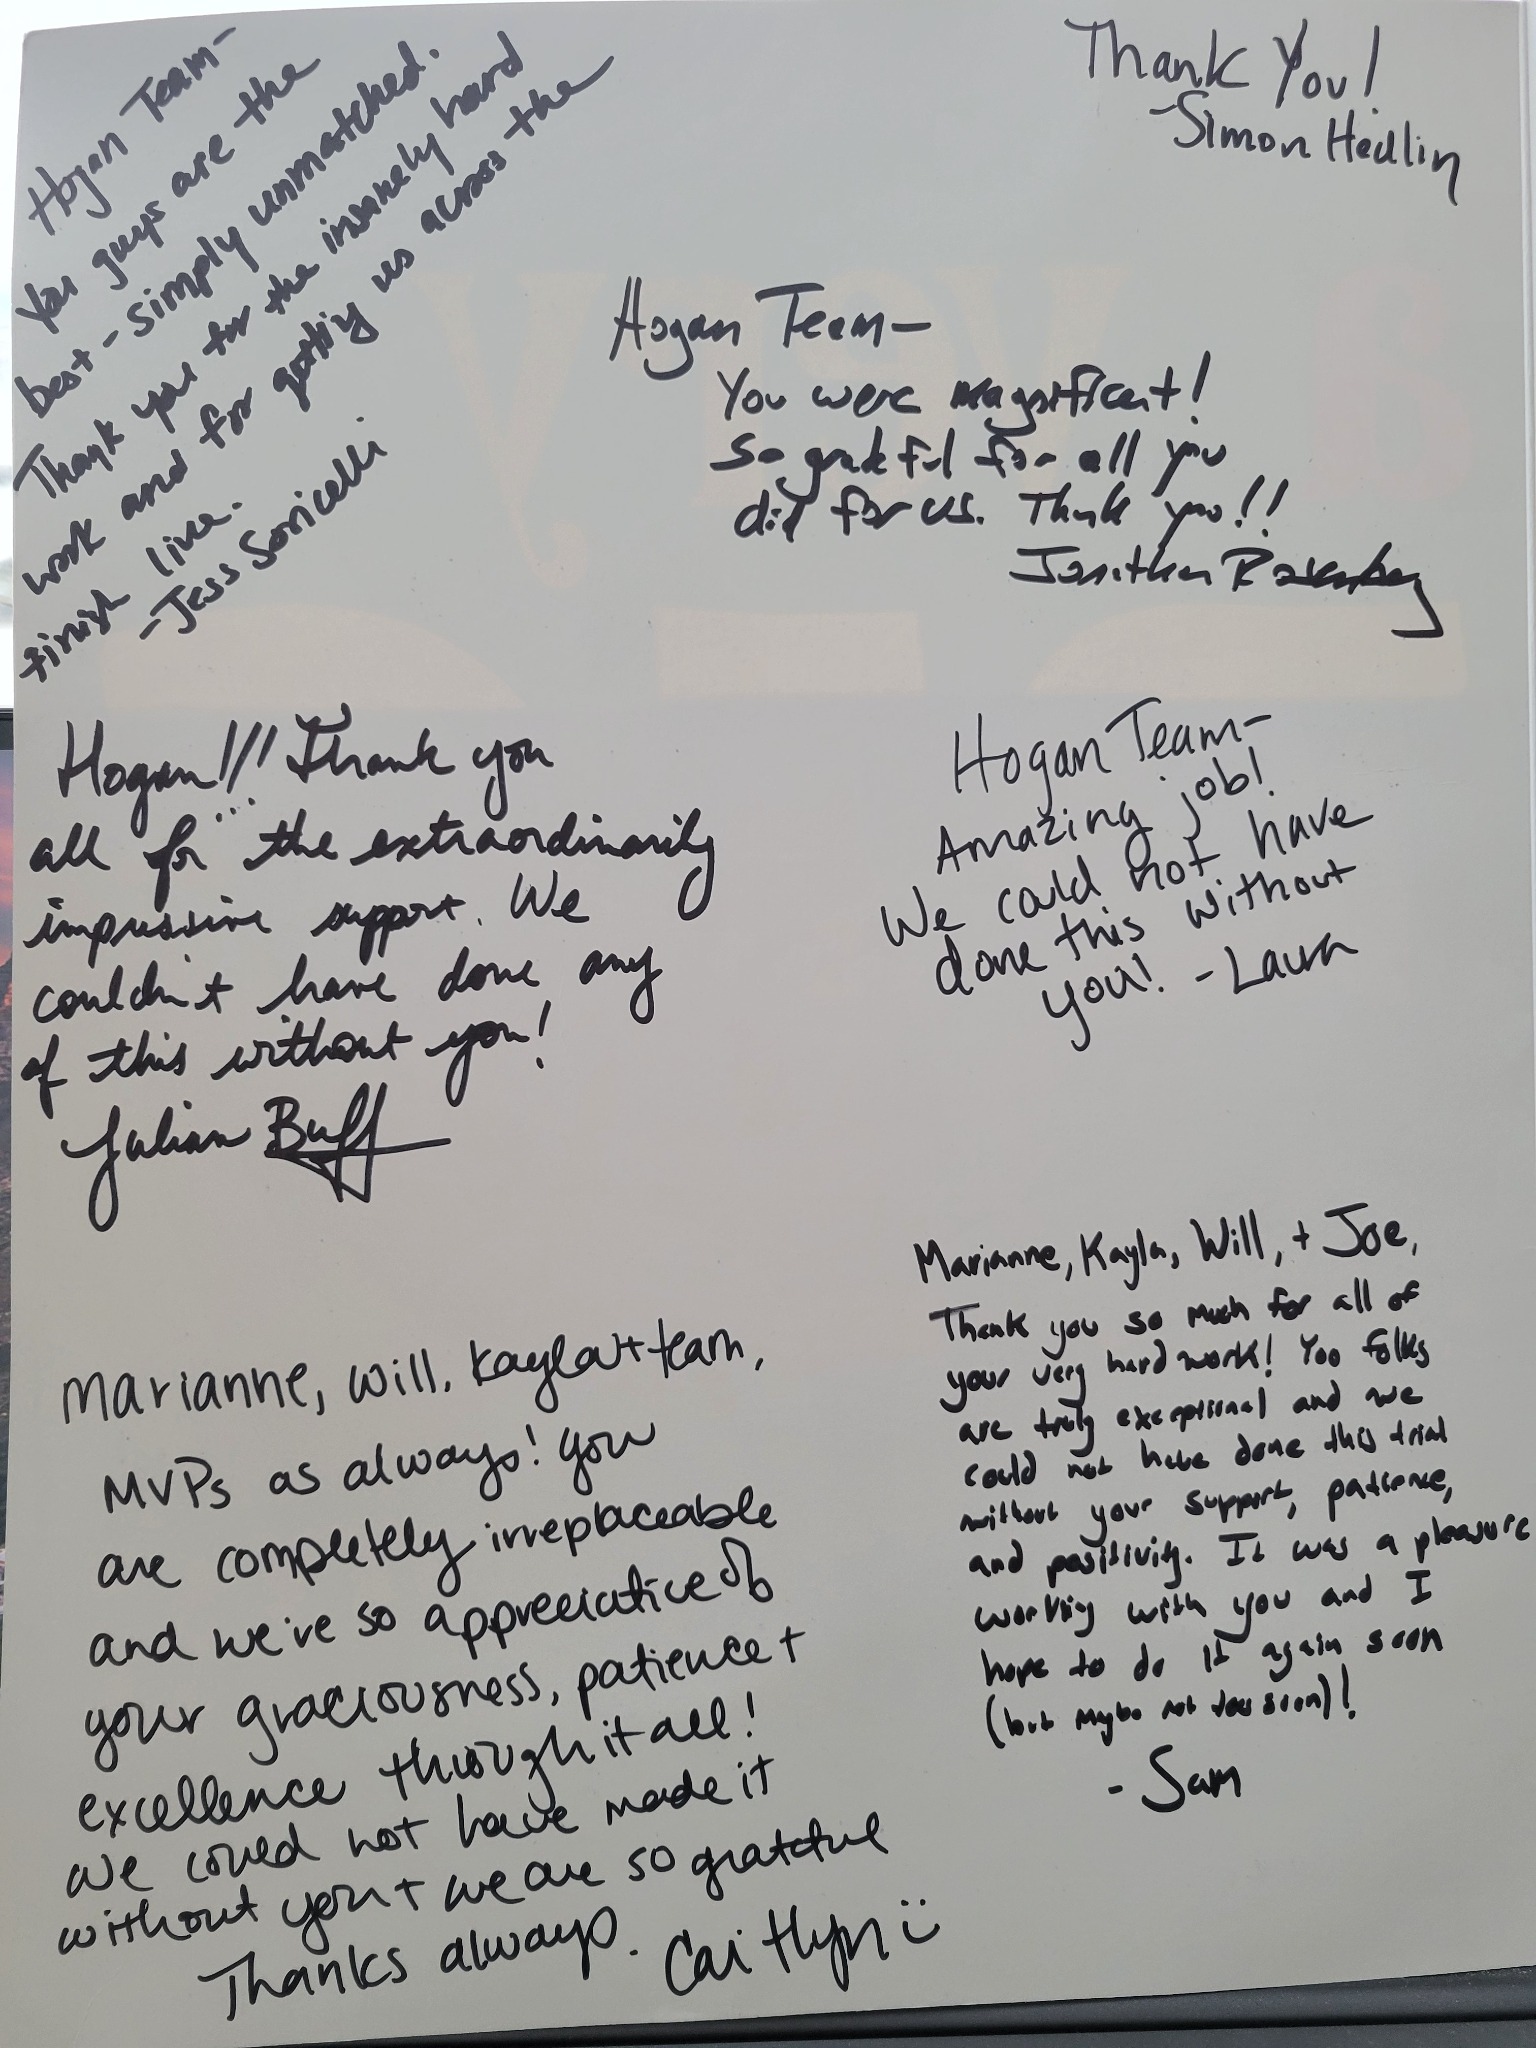 Hogan Team-
You guys are the
best - simply unmatched.
Thank you for the insanely hard
work and for getting us across the
finish line.
- Jess Soricelli
Thank You!
- Simon Hedlin
Hogan Team-
You were magnificent!
So grateful for all you
did for us. Thank you!!
Jonathan Rosenberg
Hogan!!! Thank you
all for the extraordinarily
impressive support. We
couldn't have done any
of this without you!
Julian Buff
Hogan Team-
Amazing job!
We could not have
done this without
you! - Laura
Marianne, Will, Kayla + team,
MVPs as always! You
are completely irreplaceable
and we're so appreciative of
your graciousness, patience +
excellence through it all!
We could not have made it
without you + we are so grateful
Thanks always. Caitlyn :)
Marianne, Kayla, Will, + Joe,
Thank you so much for all of
your very hard work! You folks
are truly exceptional and we
could not have done this trial
without your support, patience,
and positivity. It was a pleasure
working with you and I
hope to do it again soon
(but maybe not too soon)!
- Sam